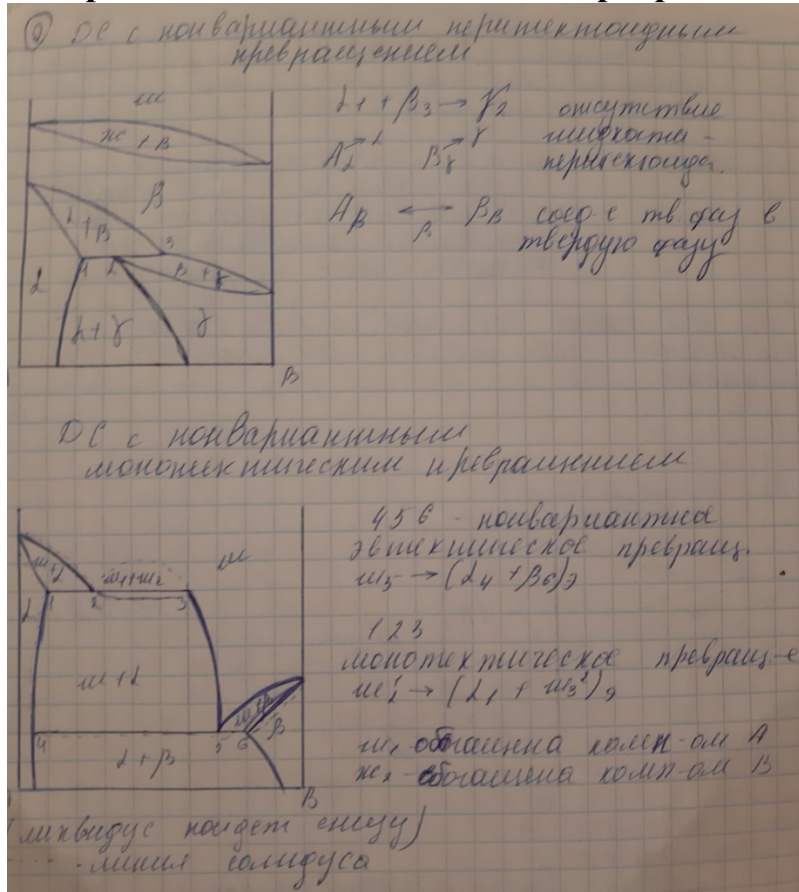 ДС с нонвариантным перитектоидным
превращением
ж
ж + β
β
α + β
α
1
2
3
β + γ
α + γ
γ
B
α1 + β3 → γ2 отсутствие
жидкости -
перитектоида.
Aβ ⟷ Bβ соед-е тв фаз в
β
твердую фазу
ДС с нонвариантным
монотектическим превращением
ж
ж1+ж2
α
1
2
3
ж+α
β
4
5
6
α + β
B
456 - нонвариантное
эвтектическое превращ.
ж5 → (α4 + β6)э
123
монотектическое превращ-е
ж1 обогащена комп-ом A
ж2 - обогащена комп-ом B
(ликвидус пойдет снизу)
---- - линия солидуса